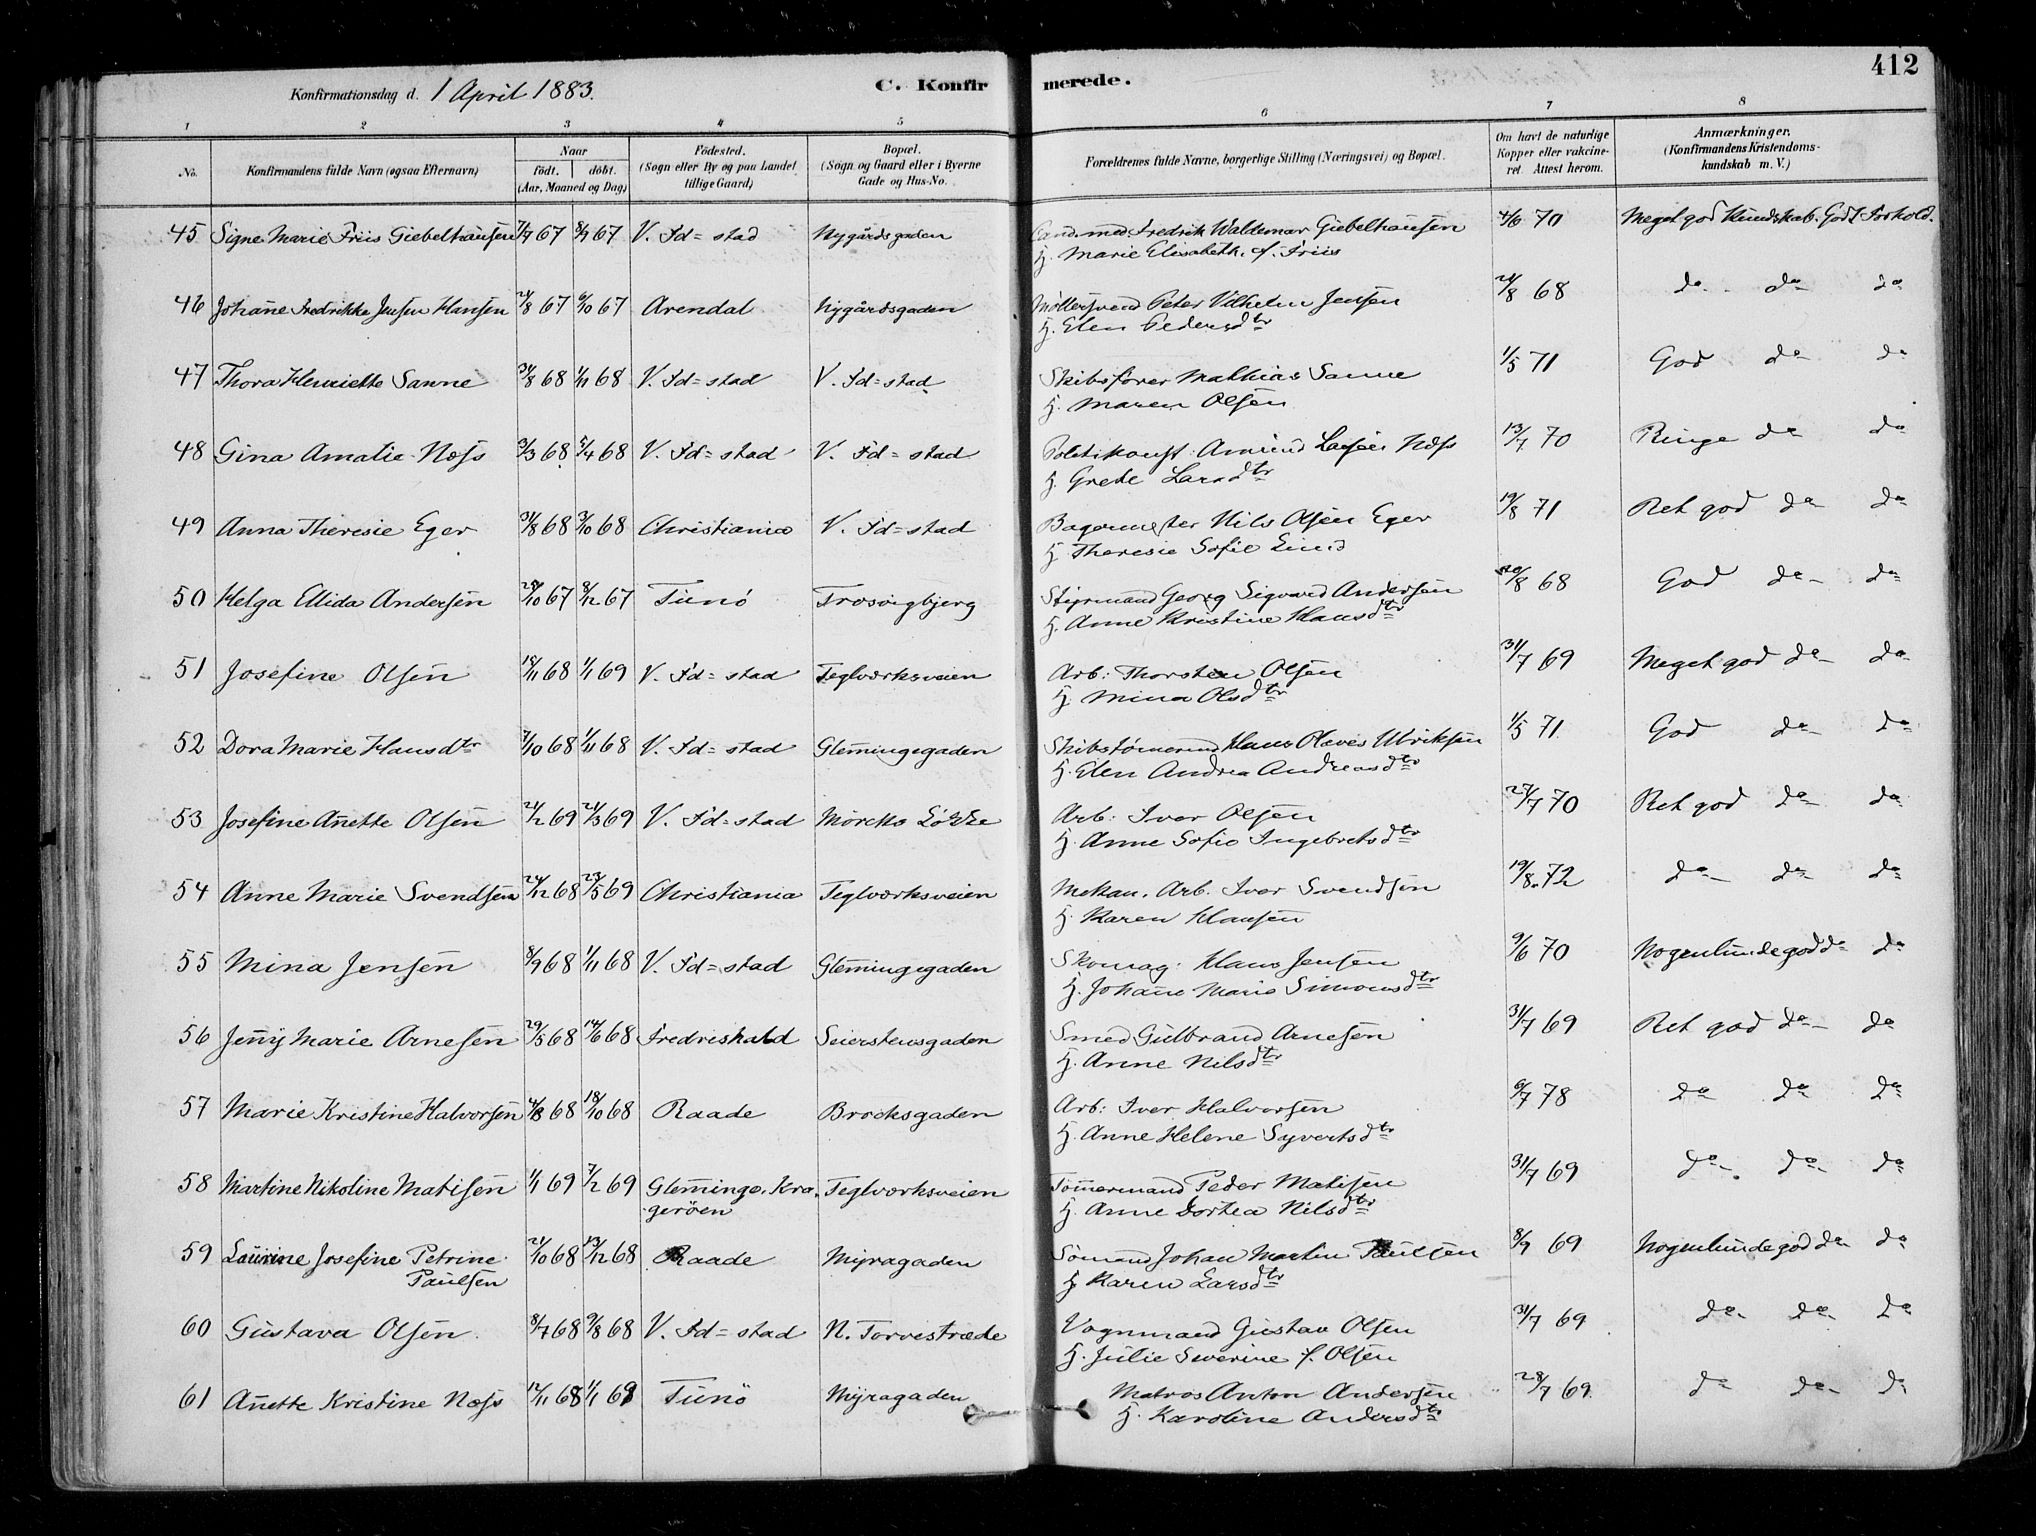 Konfirmationsdag d. 1 April 1883.
C. Konfirmerede.
412
1 2 3 4 5 6 7 8
No.
Konfirmandens fulde Navn (ogsaa Efternavn)
Naar født. døbt. (Aar, Maaned og Dag)
Fødested. (Sogn eller By og paa Landet tillige Gaard)
Bopæl. (Sogn og Gaard eller i Byerne Gade og Hus-No.
Forældrenes fulde Navne, borgerlige Stilling (Næringsvei) og Bopæl.
Om havt de naturlige Kopper eller vakcineret. Attest herom.
Anmærkninger. (Konfirmandens Kristendomskundskab m. V.)
45 Signe Marie Friis Giebelhausen 7/7 67 8/9 67 V. Fd=stad Nygårdsgaden Cand. med. Fredrik Waldemar Giebelhausen 4/6 70 Meget god Kundskab. Godt Forhold.
H. Marie Elisabeth. f. Friis
46 Johanne Fredrikke Jensen Hansen 24/8 67 6/10 67 Arendal Nygårdsgaden Møllersvend Peter Vilhelm Jensen 21/8 68 do do do
H. Elen Pedersdtr
47 Thora Henriette Sanne 31/8 68 1/11 68 V. Fd=stad V. Fd=stad Skibsfører Mathias Sanne 1/5 71 God do do
H. Maren Olsen
48 Gina Amalie Næss 3/3 68 5/4 68 V. Fd=stad V. Fd=stad Politikonst: Amund Larsen Næss 13/7 70 Ringe do do
H. Grete Larsdtr
49 Anna Theresie Eger 31/8 68 3/10 68 Christiania V. Fd=stad Bagermester Nils Olsen Eger 19/8 71 Ret god do do
H. Theresie Sofie
50 Helga Elida Andersen 28/10 67 8/12 67 Tunø Trosvigbjerg Styrmand Georg Sigvard Andersen 20/8 68 God do do
H. Anne Kristine Hansdtr
51 Josefine Olsen 18/11 68 1/1 69 V. Fd=stad Teglværksveien Arb: Thorsten Olsen 31/7 69 Meget god do do
H. Mina Olsdtr
52 Dora Marie Hansdtr 7/10 68 1/11 68 V. Fd=stad Glemmingegaden Skibstømmermd Hans Olaves Ulriksen 1/5 71 God do do
H. Elen Andrea Andreasdtr
53 Josefine Anette Olsen 21/2 69 21/3 69 V. Fd=stad Mørcks Løkke Arb: Iver Olsen 27/7 70 Ret god do do
H. Anne Sofie Ingebretsdtr
54 Anne Marie Svendsen 24/12 68 23/5 69 Christiania Teglværksveien Mekan. Arb. Iver Svendsen 19/8 72 do do do
H. Karen Hansen
55 Mina Jensen 8/9 68 1/11 68 V. Fd=stad Glemmingegaden Skomag: Hans Jensen 9/6 70 Nogenlunde god do do
H. Johanne Marie Simonsdtr
56 Jenny Marie Arnesen 29/5 68 14/6 68 Fredrikshald Seierstensgaden Smed Gulbrand Arnesen 31/7 69 Ret god do do
H. Anne Nilsdtr
57 Marie Kristine Halvorsen 4/8 68 18/10 68 Raade Brocksgaden Arb: Iver Halvorsen 6/7 78 do do do
H. Anne Helene Syvertsdtr
58 Martine Nikoline Matisen 1/1 69 7/2 69 Glemminge. Kra- Teglværksveien Tømmermand Peder Matisen 31/7 69 do do do
gerøen H. Anne Dortea Nilsdtr
59 Laurine Josefine Petrine 21/10 68 13/12 68 Raade Myragaden Sømand Johan Martin Paulsen 8/9 69 Nogenlunde god do do
Paulsen H. Karen Larsdtr
60 Gustava Olsen 8/7 68 9/8 68 V. Fd=stad N. Torvestræde Vognmand Gustav Olsen 31/7 69 do do do
H. Julie Severine f. Olsen
61 Anette Kristine Næss 12/11 68 1/1 69 Tunø Myragaden Matros Anton Andersen 28/7 69 do do do
H. Karoline Andersdtr